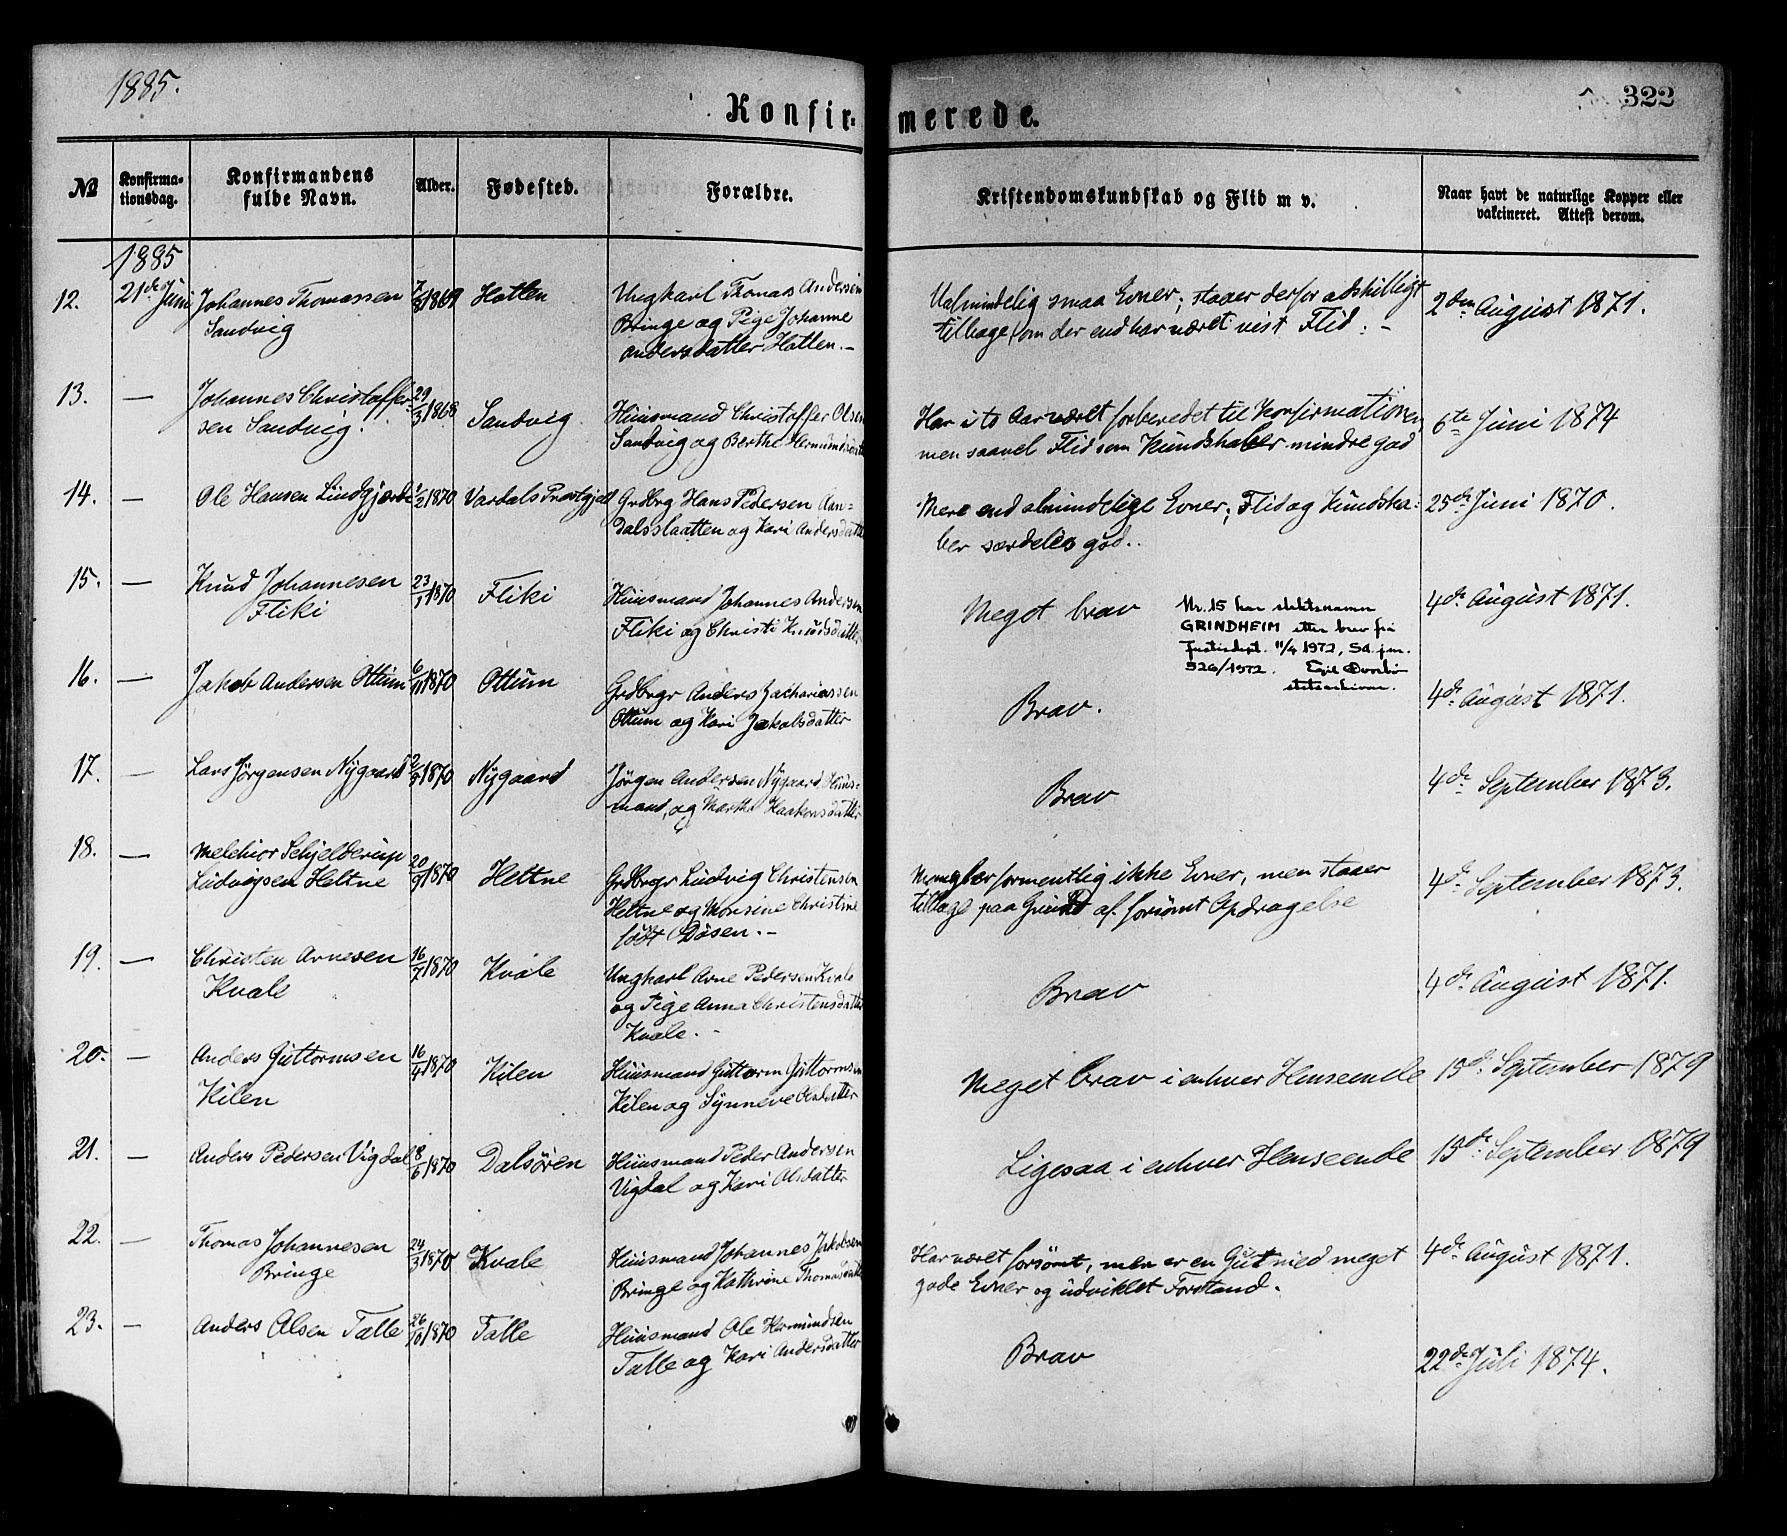 1885.
322
Konfir-
merede.
№
Konfirma-
tionsdag.
Konfirmandens
fulde Navn.
Alder.
Fødested.
Forældre.
Kristendomskundskab og Flid m v.
Naar havt de naturlige Kopper eller
vakcineret. Attest derom.
1885
12. 21de Juni Johannes Thomassen 1869 Hatlen Ungkarl Thomas Andersen Ualmindelig smaa Evner; staaer derfor adskilligt 2den August 1871.
Sandvig Bringe og Pige Johanne tilbage, om der end har været vist Flid. –
Andersdatter Hatlen. –
13. — Johannes Christoffer- 29/3 1868 Sandvig Huusmand Christoffer Olsen Har i to Aar været forberedet til Konfirmationen, 6te Juni 1874
sen Sandvig. Sandvig og Berthe Hermundsdatter men saavel Flid som Kundskaber mindre god
14. — Ole Hansen Lindgjerde 1/2 1870 Vardals Præstgjæld Grdbrg Hans Pedersen Aan- Mere end almindelige Evner; Flid og Kundska- 25de Juni 1870.
dalsslaatten og Kari Andersdatter ber særdeles god.
15. — Knud Johannesen 23/1 1870 Fliki Huusmand Johannes Andersen Meget brav 4de August 1871.
Fliki Fliki og Christi Knudsdatter.
Nr. 15 har slektsnamn
GRINDHEIM etter brev frå
Justisdept. 11/4 1972, Sd. jnr.
526/1972. Egil
statsarkivar.
16. — Jakob Andersen Ottum 6/11 1870 Ottum Grdbrgr Anders Zachariassen Brav. 4de August 1871.
Ottum og Kari Jakobsdatter
17. — Lars Jørgensen Nygaard 1870 Nygaard Jørgen Andersen Nygaard Huus- Brav 4de September 1873.
mand, og Marthe Haakonsdatter
18. — Melchior Schjelderup 20/9 1870 Heltne Grdbrgr Ludvig Christensen Mangler formentlig ikke Evner, men staaer 4de September 1873.
Ludvigsen Heltne Heltne og Monsine Christine tilbage paa Grund af forsømt Opdragelse
født Døsen. –
19. — Christen Arnesen 16/7 1870 Kvale Ungkarl Arne Pedersen Kvale Brav 4de August 1871.
Kvale og Pige Anna Christensdatter
Kvale. –
20. — Anders Guttormsen 16/4 1870 Kilen Huusmand Guttorm Guttormsen Meget brav i enhver Henseende 15de September 1879
Kilen Kilen og Synneve Olsdatter
21. — Anders Pedersen Vigdal 8/6 1870 Dalsøren Huusmand Peder Andersen Ligesaa i enhver Henseende 15de September 1879
Vigdal og Kari Olsdatter
22. — Thomas Johannesen 24/3 1870 Kvale Huusmand Johannes Jakobsen Har været forsømt, men er en Gut med meget 4de August 1871.
Bringe Bringe og Kathrine Thomasdatter gode Evner og udviklet Forstand.
23. — Anders Olsen Talle 26/10 1870 Talle Huusmand Ole Hermundsen Brav 22de Juli 1874.
Talle og Kari Andersdatter